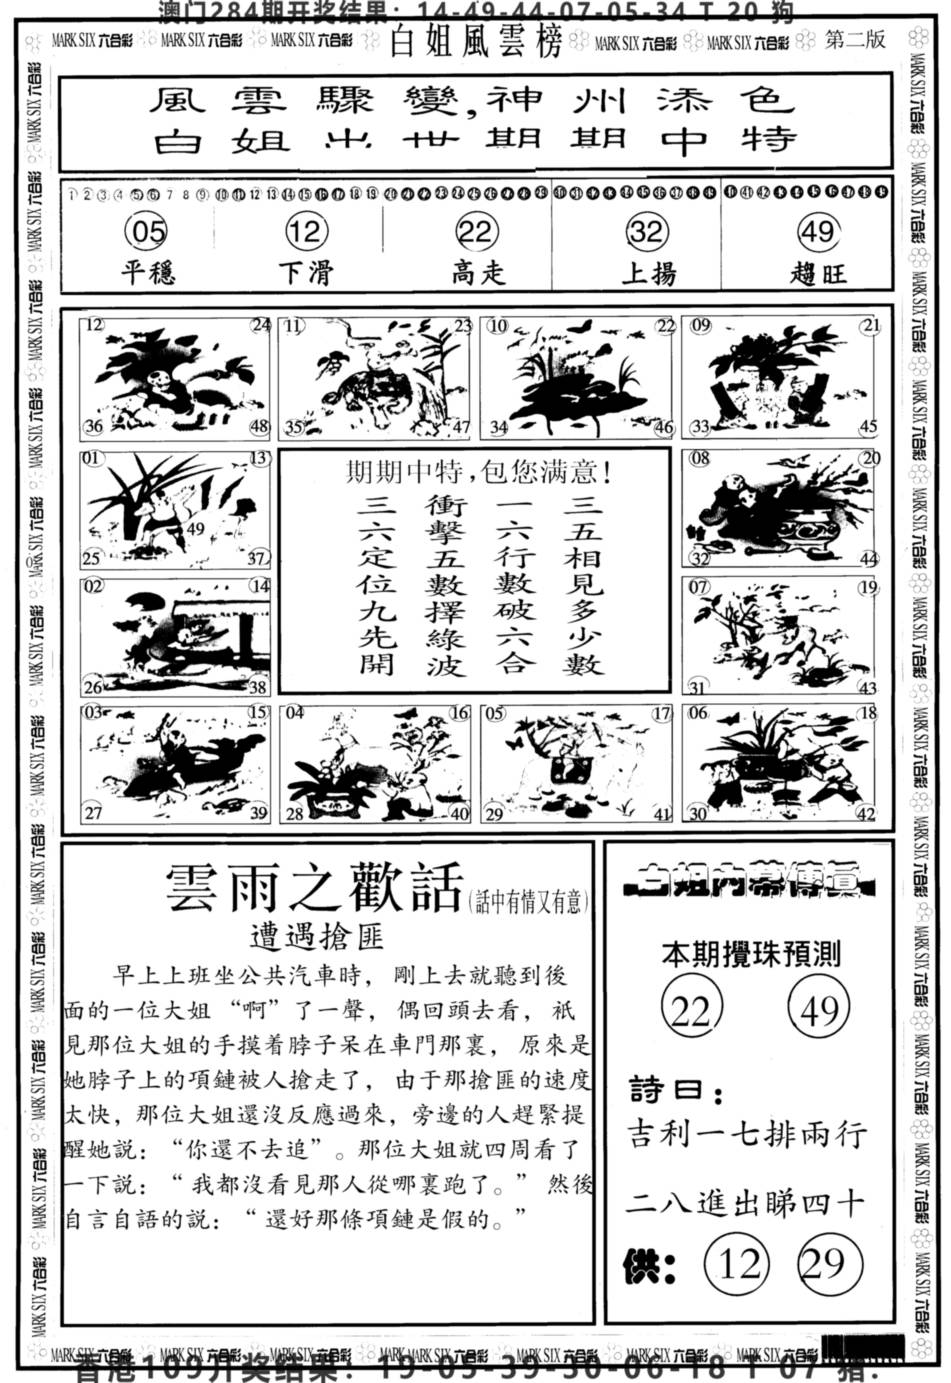 澳门284期开奖结果：14-49-44-07-05-34 T 20 狗
MARK SIX 六合彩 MARK SIX 六合彩 MARK SIX 六合彩 白姐風雲榜 MARK SIX 六合彩 MARK SIX 六合彩 第二版
風雲驟變,神州添色
白姐出世期期中特
05 12 22 32 49
平穩 下滑 高走 上揚 趨旺
12 24 11 23 10 22 09 21
36 48 35 47 34 46 33 45
01 13 08 20
49
25 37 32 44
02 14 07 19
26 38 31 43
03 15 04 16 05 17 06 18
27 39 28 40 29 41 30 42
期期中特,包您满意!
三五相見多少數
一六行數破六合
衝擊五數擇綠波
三六定位九先開
雲雨之歡話(話中有情又有意)
遭遇搶匪
早上上班坐公共汽車時，剛上去就聽到後
面的一位大姐“啊”了一聲，偶回頭去看，祇
見那位大姐的手摸着脖子呆在車門那裏，原來是
她脖子上的項鏈被人搶走了，由于那搶匪的速度
太快，那位大姐還沒反應過來，旁邊的人趕緊提
醒她説：“你還不去追”。那位大姐就四周看了
一下説：“我都沒看見那人從哪裏跑了。”然後
自言自語的説：“還好那條項鏈是假的。”
白姐內幕傳真
本期攪珠預測
22 49
詩曰：
吉利一七排兩行
二八進出睇四十
供： 12 29
MARK SIX 六合彩 MARK SIX 六合彩 MARK SIX 六合彩 MARK SIX 六合彩 MARK SIX 六合彩 MARK SIX 六合彩 MARK SIX 六合彩
香港109开奖结果：19-05-39-30-06-18 T 07 猪.